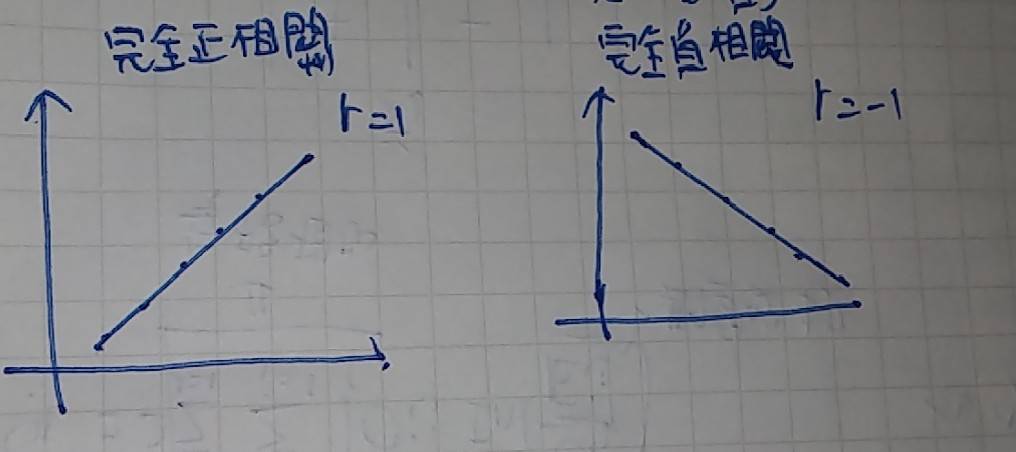 完全正相關
r=1
完全負相關
r=-1